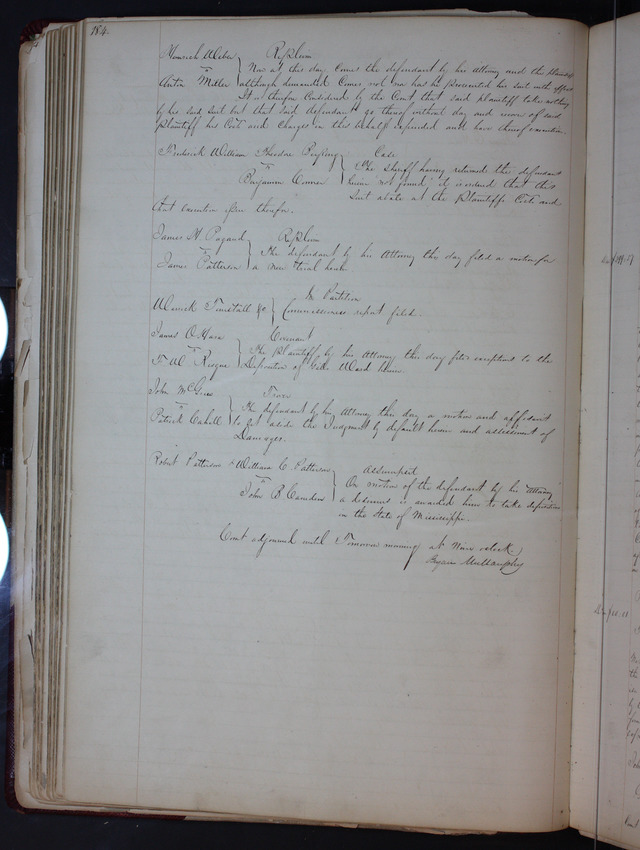 184.
Replevin
vs Now at this day Comes the defendant by his Attorney and the plaintiff
Miller although demanded Comes not nor has he prosecuted his suit with effect
It is therefore Considered by the Court that said plaintiff take nothing
by his said suit but that said defendant go thereof without day and recover of said
plaintiff his Costs and Charges in this behalf expended and have thereof execution.
Frederick William Theodore Case
vs The Sheriff having returned the defendant
Benjamin Conner herein "not found" it is ordered that this
Suit abate at the Plaintiffs Costs and
that execution issue therefor.
James H Replevin
vs The defendant by his Attorney this day filed a motion for
James Patterson a new trial herein
In Partition
Tunstall &c Commissioners report filed.
James O'Hara Covenant
vs The Plaintiff by his Attorney this day files exceptions to the
Deposition of Ward herein.
John Trover
vs The defendant by his Attorney this day a motion and affidavit
Patrick Cahill to set aside the Judgment by default herein and assessment of
Damages.
Robert Patterson & William C. Patterson Assumpsit
vs On motion of the defendant by his Attorney
John B Camden a dedimus is awarded him to take depositions
in the State of Mississippi.
Court adjourned until Tomorrow morning at Nine oclock.
Mullanphy